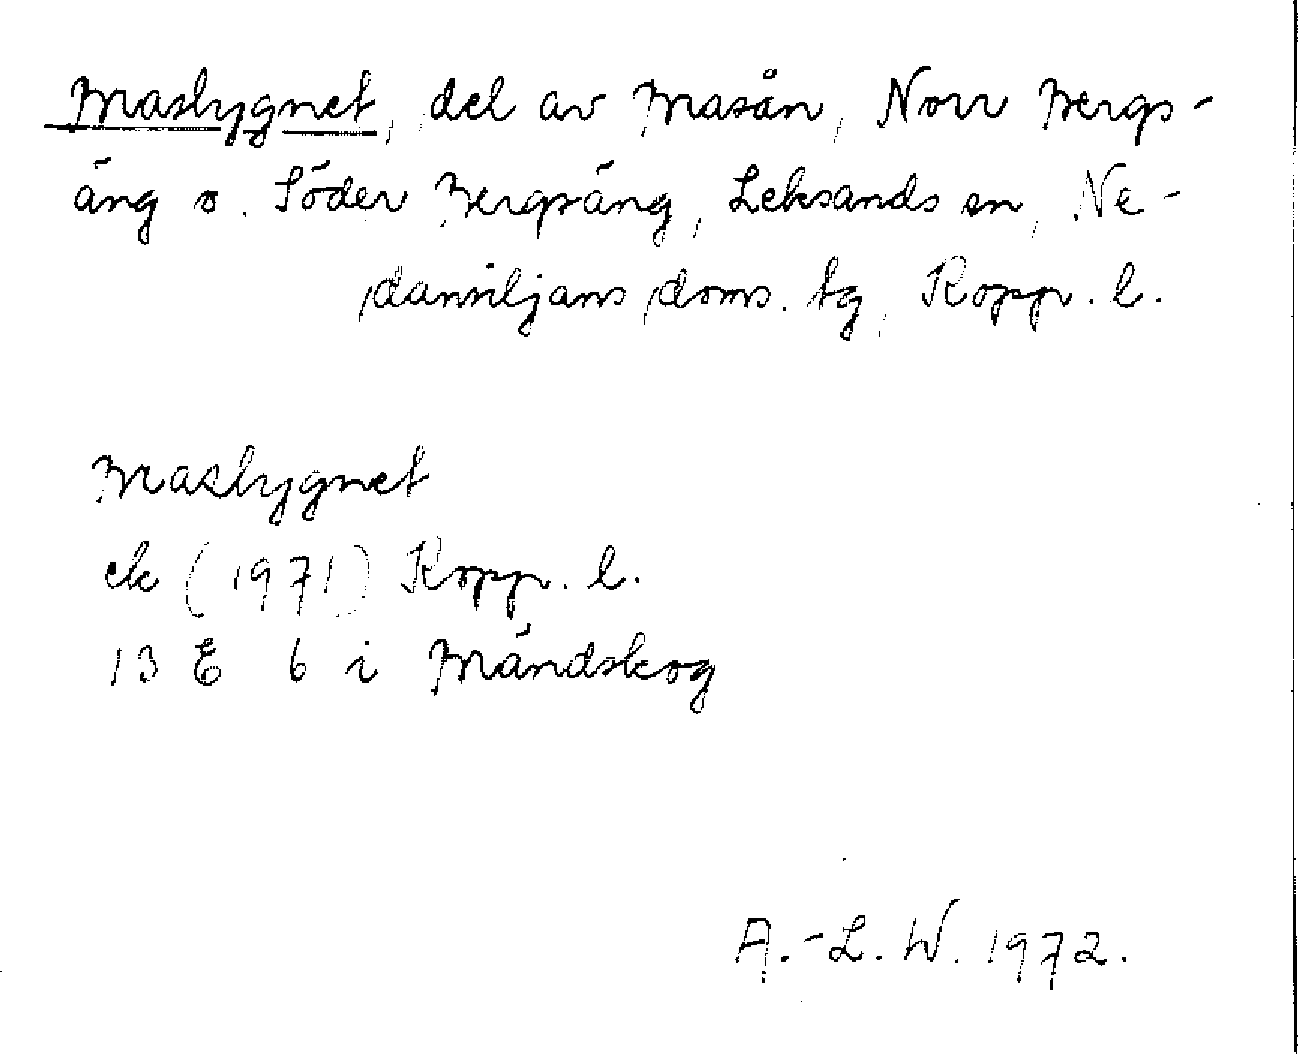 Maslygnet, del av Masån, Norr Bergs-
äng o. Söder Bergsäng, Leksands sn, Ne-
dansiljans doms. tg, Kopp. l.
Maslygnet
ek (1971) Kopp. l.
13 E 6 i Mändskog
A.-L. W. 1972.